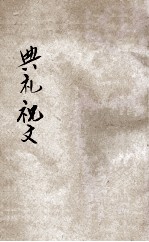 典礼祝文